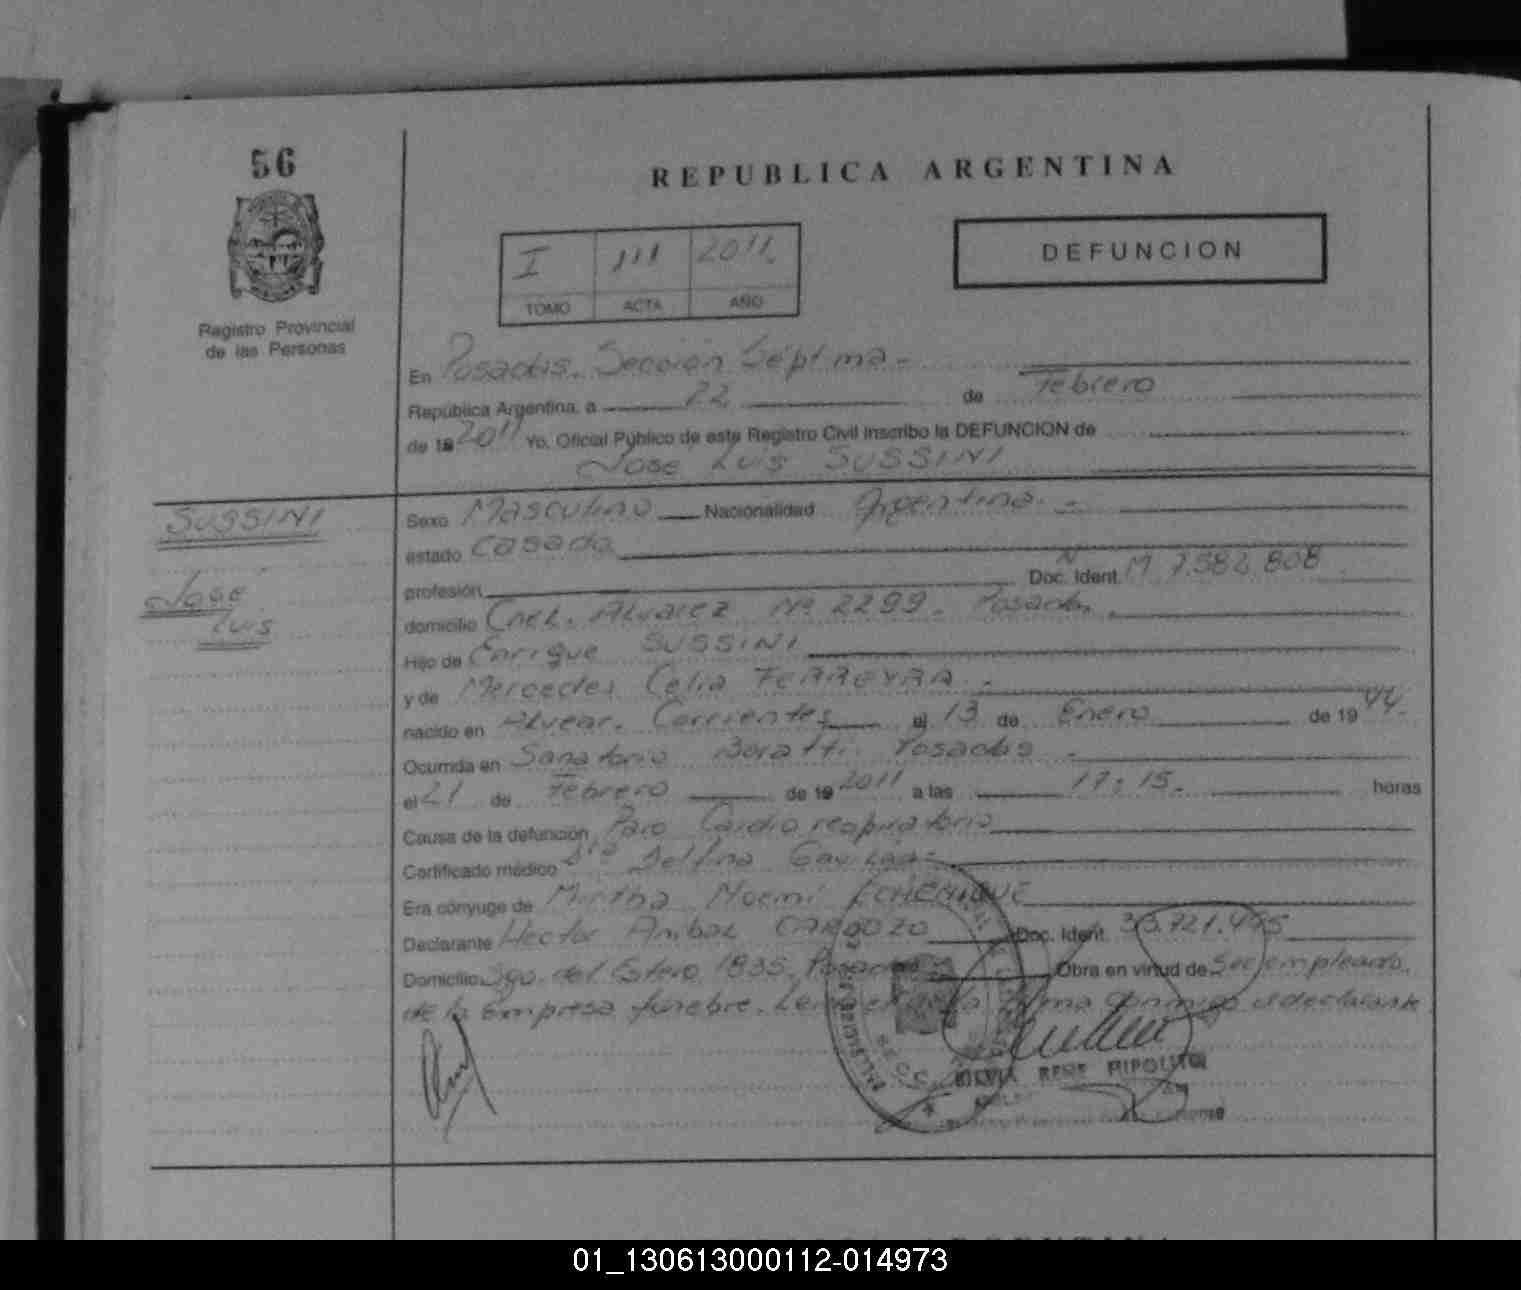 56
REPUBLICA ARGENTINA
I 111 2011.
TOMO ACTA AÑO
DEFUNCION
Registro Provincial
de las Personas
En Posadas. Sección Séptima -
República Argentina, a 22 de Febrero
de 19 2011 Yo, Oficial Público de este Registro Civil inscribo la DEFUNCION de
Jose Luis SUSSINI
SUSSINI
Jose
Luis
Sexo Masculino Nacionalidad Argentina. -
estado Casado
profesión Doc. Ident. M 7.582.808
domicilio Cnel. Alvarez Nº 2299. Posadas.
Hijo de Enrique SUSSINI
y de Mercedes Celia FERREYRA. -
nacido en Alvear. Corrientes el 13 de Enero de 19 44.
Ocurrida en Sanatorio Boratti. Posadas -
el 21 de Febrero de 19 2011 a las 17:15. horas
Causa de la defunción Paro Cardiorespiratorio
Certificado médico Delfina
Era cónyuge de Mirtha Noemi ECHENIQUE
Declarante Hector Anibal CARDOZO Doc. Ident.
Domicilio Sgo. del Estero 1835. Posadas Obra en virtud de Ser empleado
de la Empresa fúnebre. Leida el acta firma conmigo el declarante
SILVIA RENE RIPOLITTI
01_130613000112-014973